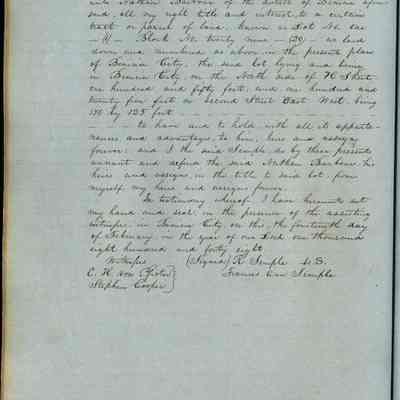 unto Nathan Barbour of the District of Benicia afore
said, all my right title and interest, to a certain
tract or parcel of land, known as Lot No. one
— 1 — Block No. twenty nine — (29) — as laid
down and numbered as above in the present plan
of Benicia City, the said lot lying and being
in Benicia City, on the North side of H Street
one hundred and fifty feet, and one hundred and
twenty five feet on Second Street East West, being
150 by 125 feet
to have and to hold with all its apperte-
nances and advantages, to him, heirs and assigns
forever; and I the said Semple do by these presents
warrant and defend the said Nathan Barbour, his
heirs and assigns, in the title to said lot, from
myself, my heirs and assigns forever.
In testimony whereof I have hereunto set
my hand and seal, in the presence of the assisting
witnesses, in Benicia City, on this, the fourteenth day
of February in the year of our Lord one thousand
eight hundred and forty eight
Witnesses (Signed) R. Semple L.S.
C. H. von Pfister Francis Semple
Stephen Cooper